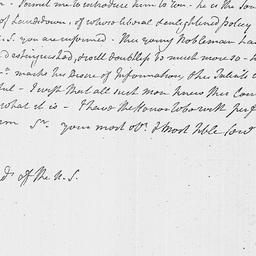 - Permit me to introduce him to you - he is the Son
of Lansdown, of whose liberal & enlightened policy
U.S. you are informed - This young Nobleman ha
distinguished, & will doubtless so much more so -
marks his Desire of Information, & his Talents
ful - I wish that all such men knew this Coun
what it is - I have the Honor to be with perf
Sr. your most obt. & most hble Servt
of the U.S.